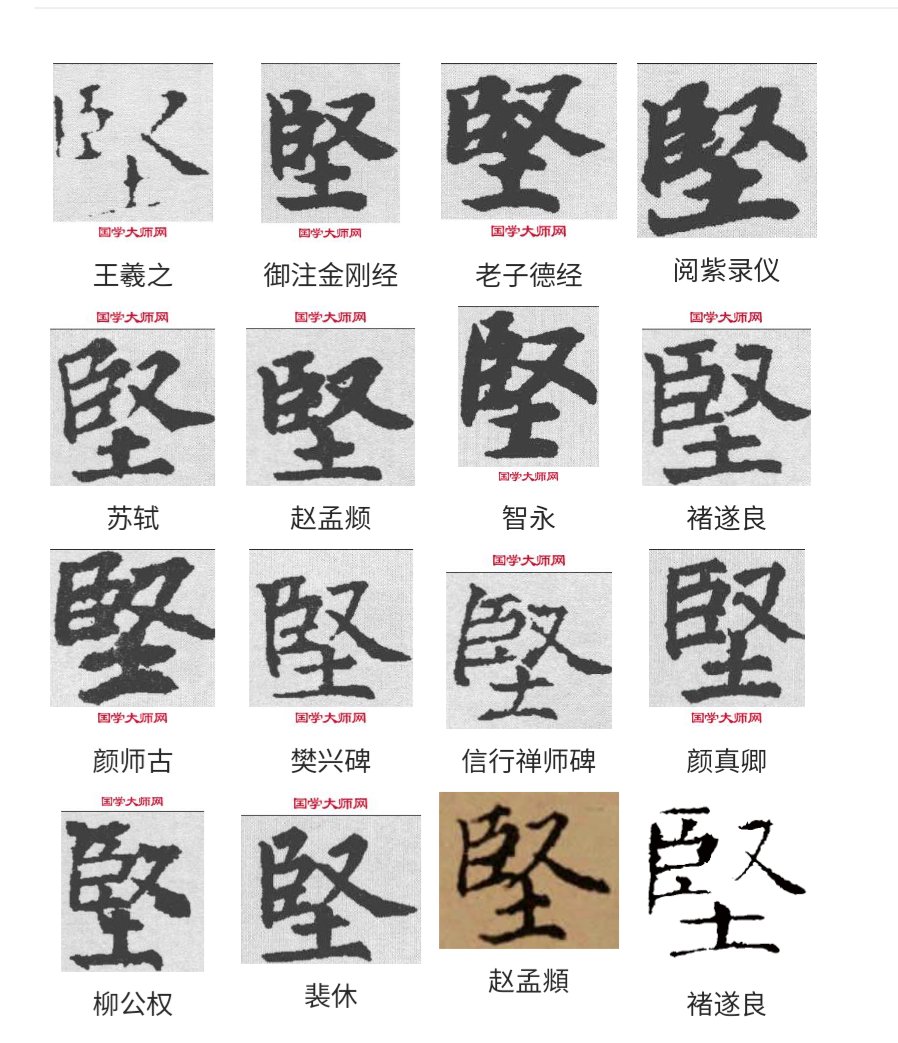 堅 堅 堅 堅
国学大师网 国学大师网 国学大师网
王羲之 御注金刚经 老子德经 阅紫录仪
国学大师网 国学大师网 国学大师网
堅 堅 堅 堅
国学大师网
苏轼 赵孟頫 智永 褚遂良
国学大师网
堅 堅 堅 堅
国学大师网 国学大师网 国学大师网
颜师古 樊兴碑 信行禅师碑 颜真卿
国学大师网 国学大师网
堅 堅 堅 堅
柳公权 裴休 赵孟頫 褚遂良